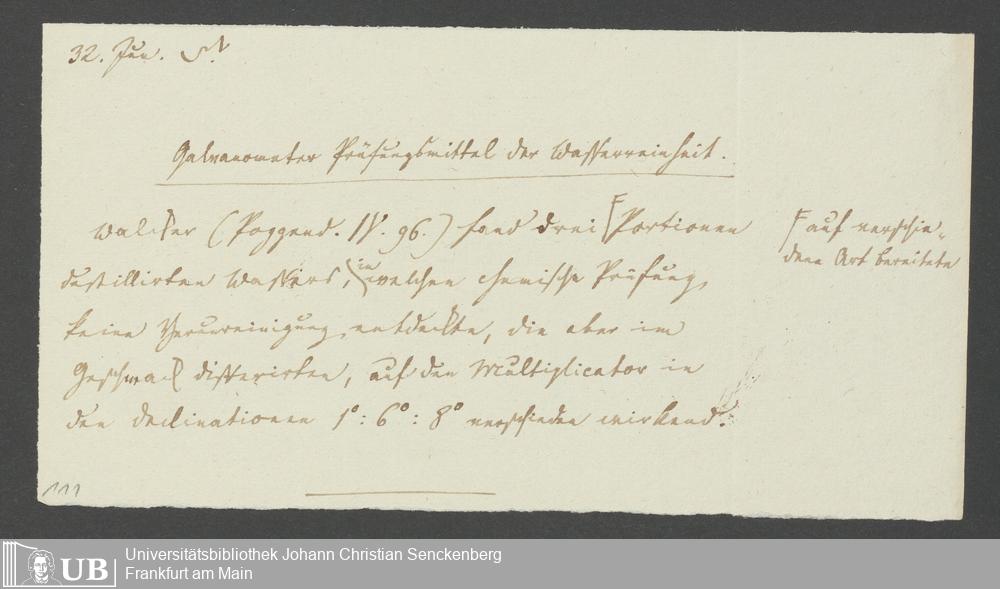 32. Jun.
Galvanometer Prüfungsmittel der Wasserreinheit.
Walcker (Poggend. IV. 96.) fand drei ⌈Portionen
destillirten Wassers, in welchen chemische Prüfung
keine Verunreinigung entdeckte, die aber im
Geschmack differirten, auf den Multiplicator in
den Declinationen 1°: 6°: 8° verschieden wirkend.
⌈auf verschie-
dene Art bereitete
111
UB
Universitätsbibliothek Johann Christian Senckenberg
Frankfurt am Main